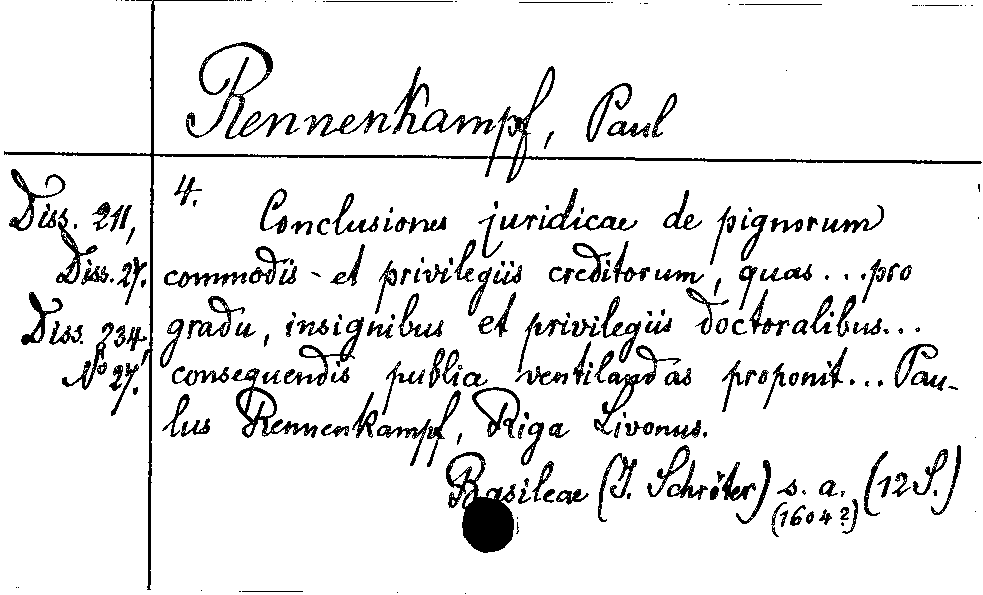 Rennenkampf, Paul
Diss. 211,
Diss. 27.
Diss. 234,
No 27.
4.
Conclusiones juridicae de pignorum
commodis et privilegiis creditorum, quas ... pro
gradu, insignibus et privilegiis doctoralibus...
consequendis publia ventilandas proponit... Pau-
lus Rennenkampf, Riga Livonus.
Basileae (J. Schröter) s. a. (12 S.)
(1604?)